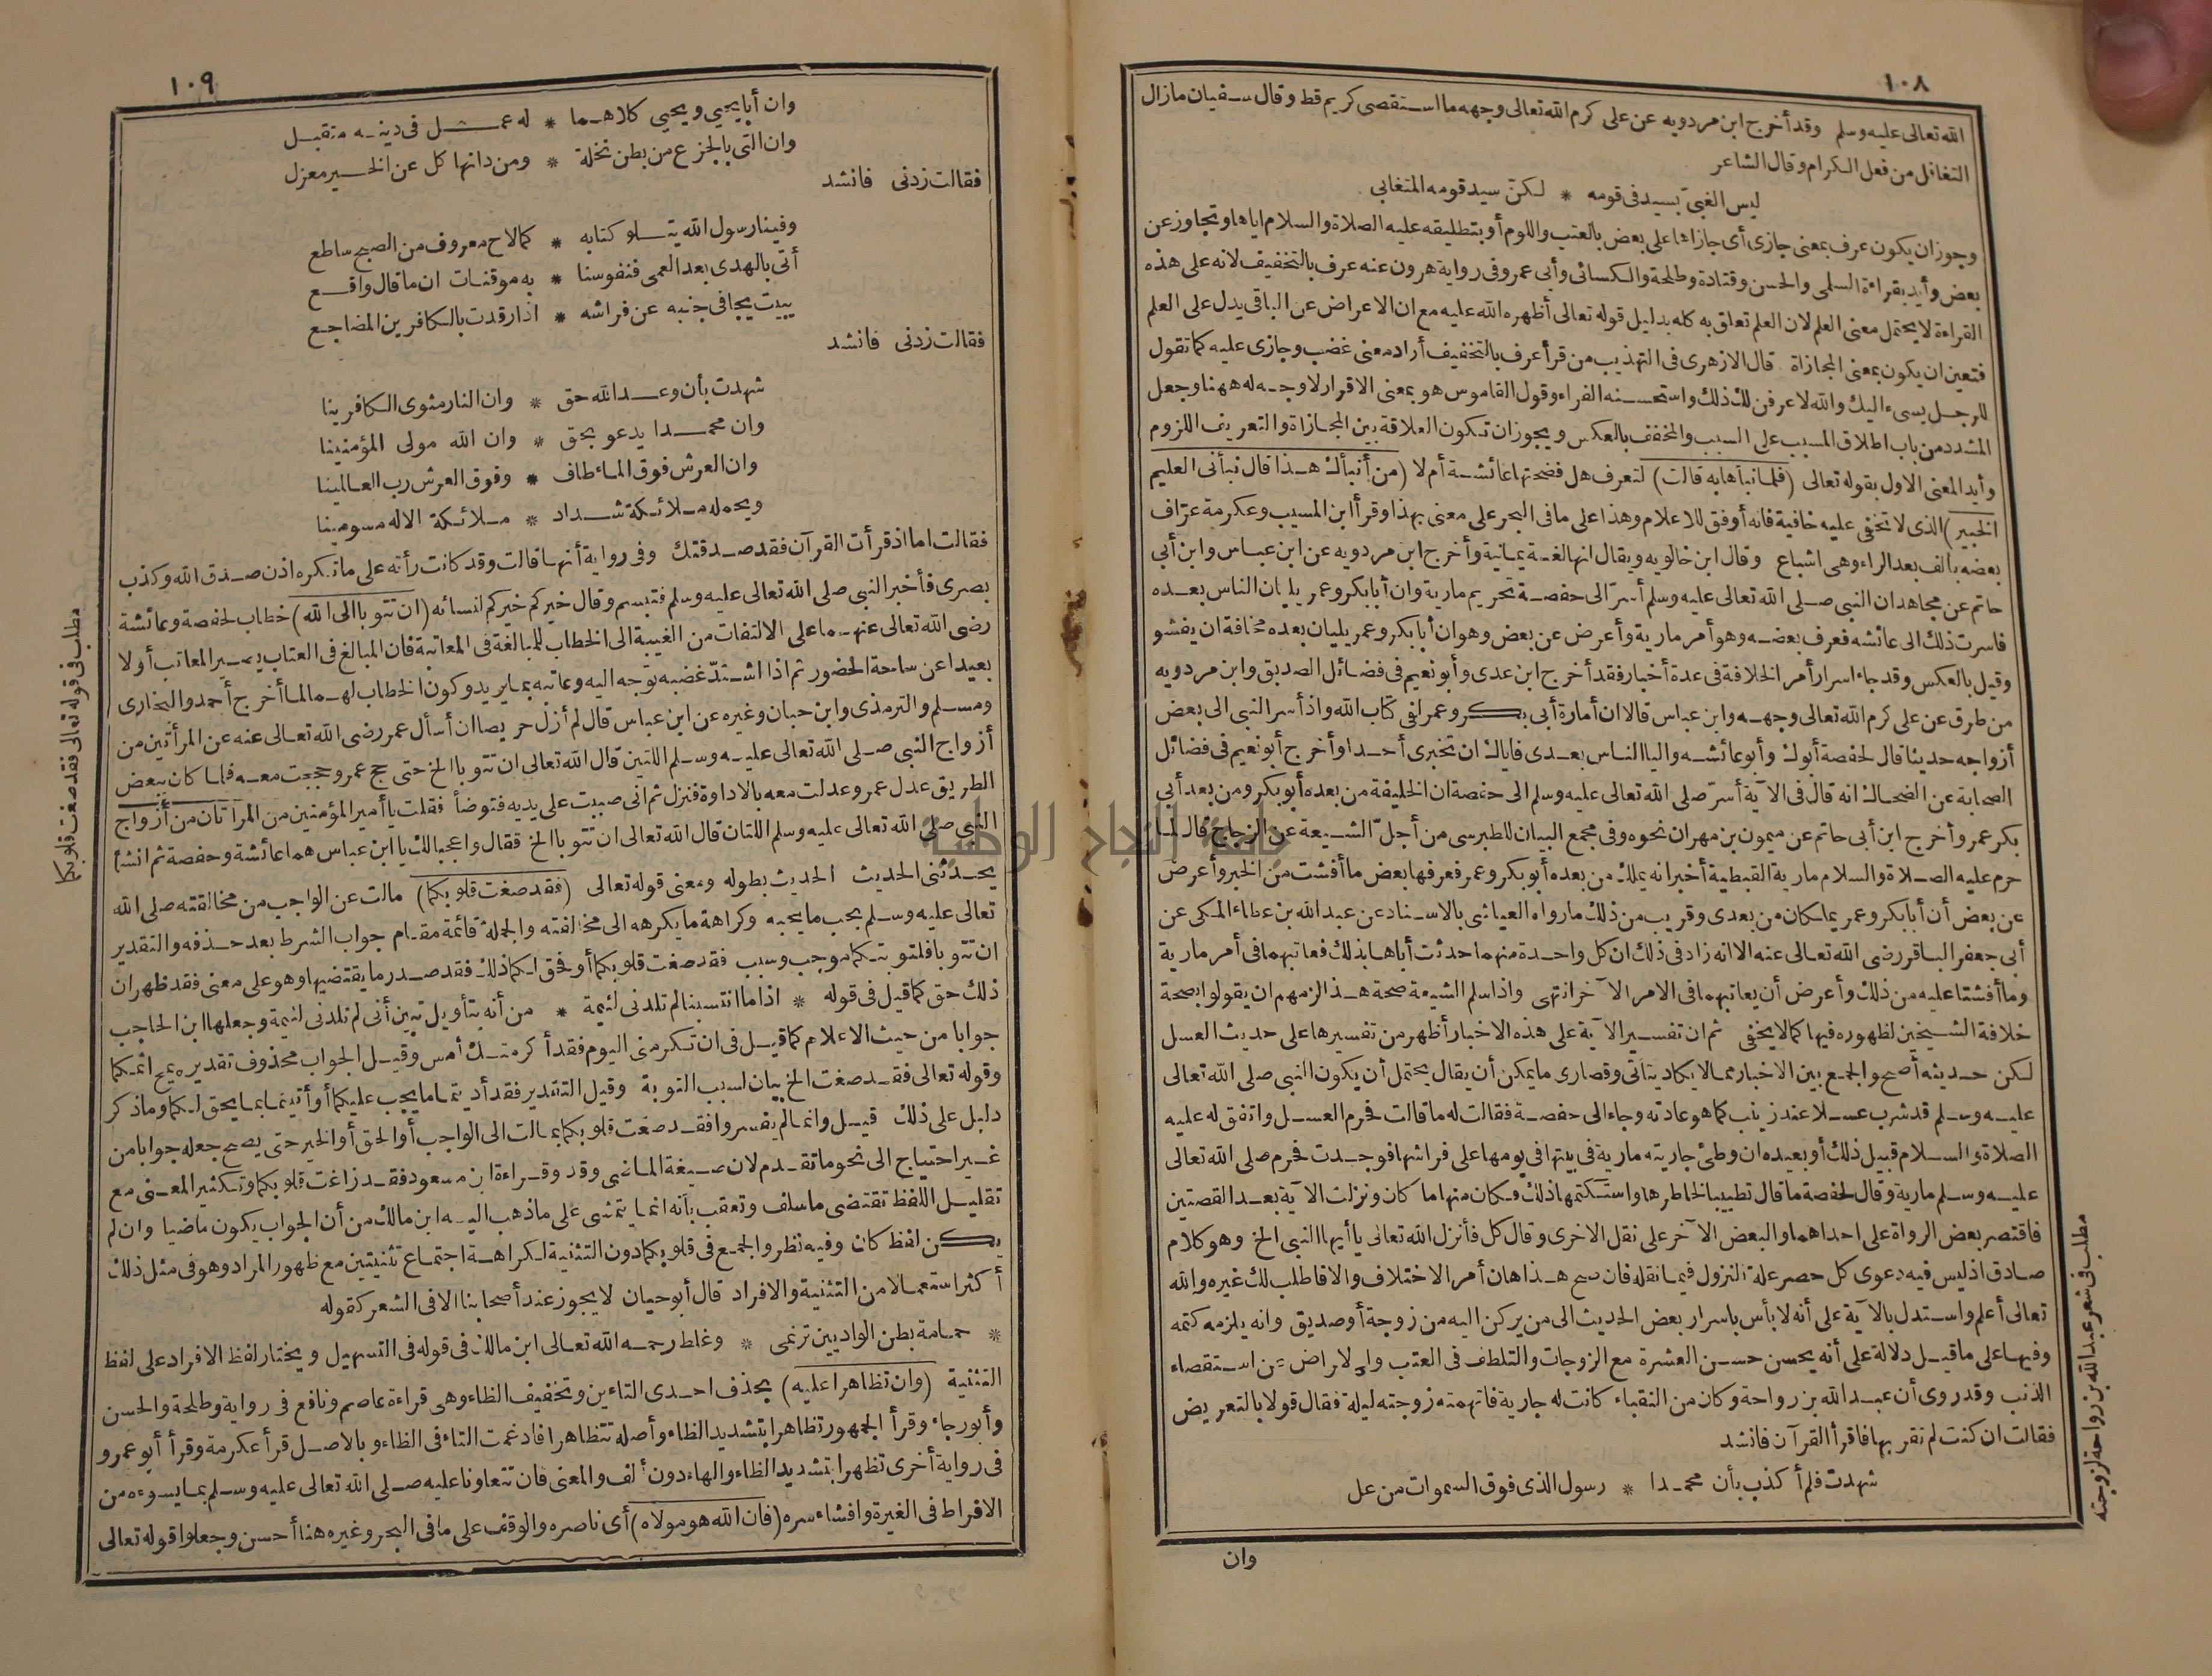 ١٠٨
الله تعالى عليه وسلم وقد أخرج ابن مردويه عن على كرم الله تعالى وجهه ما استقصى كريم قط وقال سفيان مازال
التغافل من فعل الكرام وقال الشاعر
ليس الغبىّ بسيد فى قومه * لكنّ سيد قومه المتغابى
وجوز ان يكون عرف بمعنى جازى أى جازاها على بعض بالعتب واللوم أو بتطليقه عليه الصلاة والسلام اياها وتجاوز عن
بعض وأيد بقراءة السلمى والحسن وقتادة وطلحة والكسائى وأبى عمرو فى رواية هرون عنه عرف بالتخفيف لانه على هذه
القراءة لا يحتمل معنى العلم لان العلم تعلق به كله بدليل قوله تعالى أظهره الله عليه مع ان الاعراض عن الباقى يدل على العلم
فتعين ان يكون بمعنى المجازاة قال الازهرى فى التهذيب من قرأ عرف بالتخفيف أراد معنى غضب وجازى عليه كما تقول
للرجل يسىء اليك والله لاعرفن لك ذلك واستحسنه الفراء وقول القاموس هو بمعنى الاقرار لا وجه له ههنا وجعل
المشدد من باب اطلاق المسبب على السبب والمخفف بالعكس ويجوز ان تكون العلاقة بين المجازاة والتعريف اللزوم
وأيد المعنى الاول بقوله تعالى (فلما نبأها به قالت) لتعرف هل فضحتها عائشة أم لا (من أنبأك هذا قال نبأنى العليم
الخبير) الذى لا تخفى عليه خافية فانه أوفق للاعلام وهذا على ما فى البحر على معنى بهذا وقرأ ابن المسيب وعكرمة عرّاف
بعضه بألف بعد الراء وهى اشباع وقال ابن خالويه ويقال انها لغة يمانية وأخرج ابن مردويه عن ابن عباس وابن أبى
حاتم عن مجاهد ان النبى صلى الله تعالى عليه وسلم أسرّ الى حفصة تحريم مارية وان أبا بكر وعمر يليان الناس بعده
فاسرت ذلك الى عائشه فعرف بعضه وهو أمر مارية وأعرض عن بعض وهو ان أبا بكر وعمر يليان بعده مخافة ان يفشو
وقيل بالعكس وقد جاء اسرار أمر الخلافة فى عدة أخبار فقد أخرج ابن عدى وأبو نعيم فى فضائل الصديق وابن مردويه
من طرق عن على كرم الله تعالى وجهه وابن عباس قالا ان أمارة أبى بكر وعمر لفى كتاب الله واذ أسر النبى الى بعض
أزواجه حديثا قال لحفصة أبوك وأبو عائشه واليا الناس بعدى فاياك ان تخبرى أحدا وأخرج أبو نعيم فى فضائل
الصحابة عن الضحاك انه قال فى الآية أسرّ صلى الله تعالى عليه وسلم الى حفصة ان الخليفة من بعده أبو بكر ومن بعد أبى
بكر عمر وأخرج ابن أبى حاتم عن ميمون بن مهران نحوه وفى مجمع البيان للطبرسى من أجلّ الشيعة عن الزجاج قال لما
حرم عليه الصلاة والسلام مارية القبطية أخبر انه يملك من بعده أبو بكر وعمر فعرفها بعض ما أفشت من الخبر وأعرض
عن بعض أن أبا بكر وعمر يملكان من بعدى وقريب من ذلك ما رواه العياشى بالاسناد عن عبد الله بن عطاء المكى عن
أبى جعفر الباقر رضى الله تعالى عنه الا انه زاد فى ذلك ان كل واحدة منهما حدثت أباها بذلك فعاتبهما فى أمر مارية
وما أفشتا عليه من ذلك وأعرض أن يعاتبهما فى الامر الآخر انتهى واذا سلم الشيعة صحة هذا لزمهم ان يقولوا بصحة
خلافة الشيخين لظهوره فيها كما لا يخفى ثم ان تفسير الآية على هذه الاخبار أظهر من تفسيرها على حديث العسل
لكن حديثه أصح والجمع بين الاخبار مما لا يكاد يتأتى وقصارى ما يمكن أن يقال يحتمل أن يكون النبى صلى الله تعالى
عليه وسلم قد شرب عسلا عند زينب كما هو عادته وجاء الى حفصة فقالت له ما قالت فحرم العسل واتفق له عليه
الصلاة والسلام قبيل ذلك أو بعيده ان وطئ جاريته مارية فى بيتها فى يومها على فراشها فوجدت فحرم صلى الله تعالى
عليه وسلم مارية وقال لحفصة ما قال تطييبا لخاطرها واستكتمها ذلك فكان منها ما كان ونزلت الآية بعد القصتين
فاقتصر بعض الرواة على احداهما والبعض الآخر على نقل الاخرى وقال كل فأنزل الله تعالى يا أيها النبى الخ وهو كلام
صادق اذ ليس فيه دعوى كل حصر علة النزول فيما نقله فان صح هذا هان أمر الاختلاف والا فاطلب لك غيره والله
تعالى أعلم واستدل بالآية على أنه لا بأس باسرار بعض الحديث الى من يركن اليه من زوجة أو صديق وانه يلزمه كتمه
وفيها على ما قيل دلالة على أنه يحسن حسن العشرة مع الزوجات والتلطف فى العتب والاعراض عن استقصاء
الذنب وقد روى أن عبد الله بن رواحة وكان من النقباء كانت له جارية فاتهمته زوجته ليلة فقال قولا بالتعريض
فقالت ان كنت لم تقربها فاقرأ القرآن فانشد
شهدت فلم أكذب بأن محمدا * رسول الذى فوق السموات من عل
وان
مطلب فى شعر عبد الله بن رواحة لزوجته
١٠٩
وان أبا يحيي ويحيى كلاهما * له عمل فى دينه متقبل
وان التى بالجزع من بطن نخلة * ومن دانها كل عن الخير معزل
فقالت زدنى فانشد
وفينا رسول الله يتلو كتابه * كما لاح معروف من الصبح ساطع
أتى بالهدى بعد العمى فنفوسنا * به موقنات ان ما قال واقع
يبيت يجافى جنبه عن فراشه * اذا رقدت بالكافرين المضاجع
فقالت زدنى فانشد
شهدت بأن وعد الله حق * وان النار مثوى الكافرينا
وان محمدا يدعو بحق * وان الله مولى المؤمنينا
وان العرش فوق الماء طاف * وفوق العرش رب العالمينا
ويحمله ملائكة شداد * ملائكة الاله مسومينا
فقالت اما اذ قرأت القرآن فقد صدقتك وفى رواية أنها قالت وقد كانت رأته على ما تكره اذن صدق الله وكذب
بصرى فأخبر النبى صلى الله تعالى عليه وسلم فتبسم وقال خيركم خيركم لنسائه (ان تتوبا الى الله) خطاب لحفصة وعائشة
رضى الله تعالى عنهما على الالتفات من الغيبة الى الخطاب للمبالغة فى المعاتبة فان المبالغ فى العتاب يصير المعاتب أولا
بعيدا عن ساحة الحضور ثم اذا اشتدّ غضبه توجه اليه وعاتبه بما يريد وكون الخطاب لهما لما أخرج أحمد والبخارى
ومسلم والترمذى وابن حبان وغيره عن ابن عباس قال لم أزل حريصا ان أسأل عمر رضى الله تعالى عنه عن المرأتين من
أزواج النبى صلى الله تعالى عليه وسلم اللتين قال الله تعالى ان تتوبا الخ حتى حج عمر وحججت معه فلما كان ببعض
الطريق عدل عمر وعدلت معه بالاداوة فنزل ثم انى صببت على يديه فتوضأ فقلت يا أمير المؤمنين من المرأتان من أزواج
النبى صلى الله تعالى عليه وسلم اللتان قال الله تعالى ان تتوبا الخ فقال واعجبا لك يا ابن عباس هما عائشة وحفصة ثم انشأ
يحدثنى الحديث الحديث بطوله ومعنى قوله تعالى (فقد صغت قلوبكما) مالت عن الواجب من مخالفته صلى الله
تعالى عليه وسلم بحب ما يحبه وكراهة ما يكرهه الى مخالفته والجملة قائمة مقام جواب الشرط بعد حذفه والتقدير
ان تتوبا فلتوبتكما موجب وسبب فقد صغت قلوبكما أو فحق لكما ذلك فقد صدر ما يقتضيها وهو على معنى فقد ظهر ان
ذلك حق كما قيل فى قوله * اذا ما انتسبنا لم تلدنى لئيمة * من أنه بتأويل تبين أنى لم تلدنى لئيمة وجعلها ابن الحاجب
جوابا من حيث الاعلام كما قيل فى ان تكرمنى اليوم فقد أكرمتك أمس وقيل الجواب محذوف تقديره يمح اثمكما
وقوله تعالى فقد صغت الخ بيان لسبب التوبة وقيل التقدير فقد أديتما ما يجب عليكما أو أتيتما بما يحق لكما وما ذكر
دليل على ذلك قيل وانما لم يفسروا فقد صغت قلوبكما بمالت الى الواجب أو الحق أو الخير حتى يصح جعله جوابا من
غير احتياج الى نحو ما تقدم لان صيغة الماضى وقد وقراءة ابن مسعود فقد زاغت قلوبكما وتكثير المعنى مع
تقليل اللفظ تقتضى ما سلف وتعقب بأنه انما يتمشى على ما ذهب اليه ابن مالك من أن الجواب يكون ماضيا وان لم
يكن لفظ كان وفيه نظر والجمع فى قلوبكما دون التثنية لكراهة اجتماع تثنيتين مع ظهور المراد وهو فى مثل ذلك
أكثر استعمالا من التثنية والافراد قال أبو حيان لا يجوز عند أصحابنا الا فى الشعر كقوله
* حمامة بطن الواديين ترنمى * وغلط رحمه الله تعالى ابن مالك فى قوله فى التسهيل ويختار لفظ الافراد على لفظ
التثنية (وان تظاهرا عليه) بحذف احدى التاءين وتخفيف الظاء وهى قراءة عاصم ونافع فى رواية وطلحة والحسن
وأبو رجاء وقرأ الجمهور تظاهرا بتشديد الظاء وأصله تتظاهرا فادغمت التاء فى الظاء وبالاصل قرأ عكرمة وقرأ أبو عمرو
فى رواية أخرى تظهرا بتشديد الظاء والهاء دون ألف والمعنى فان تتعاونا عليه صلى الله تعالى عليه وسلم بما يسوءه من
الافراط فى الغيرة وافشاء سره (فان الله هو مولاه) أى ناصره والوقف على ما فى البحر وغيره هنا أحسن وجعلوا قوله تعالى
مطلب فى قوله تعالى فقد صغت قلوبكما
جامعة النجاح الوطنية